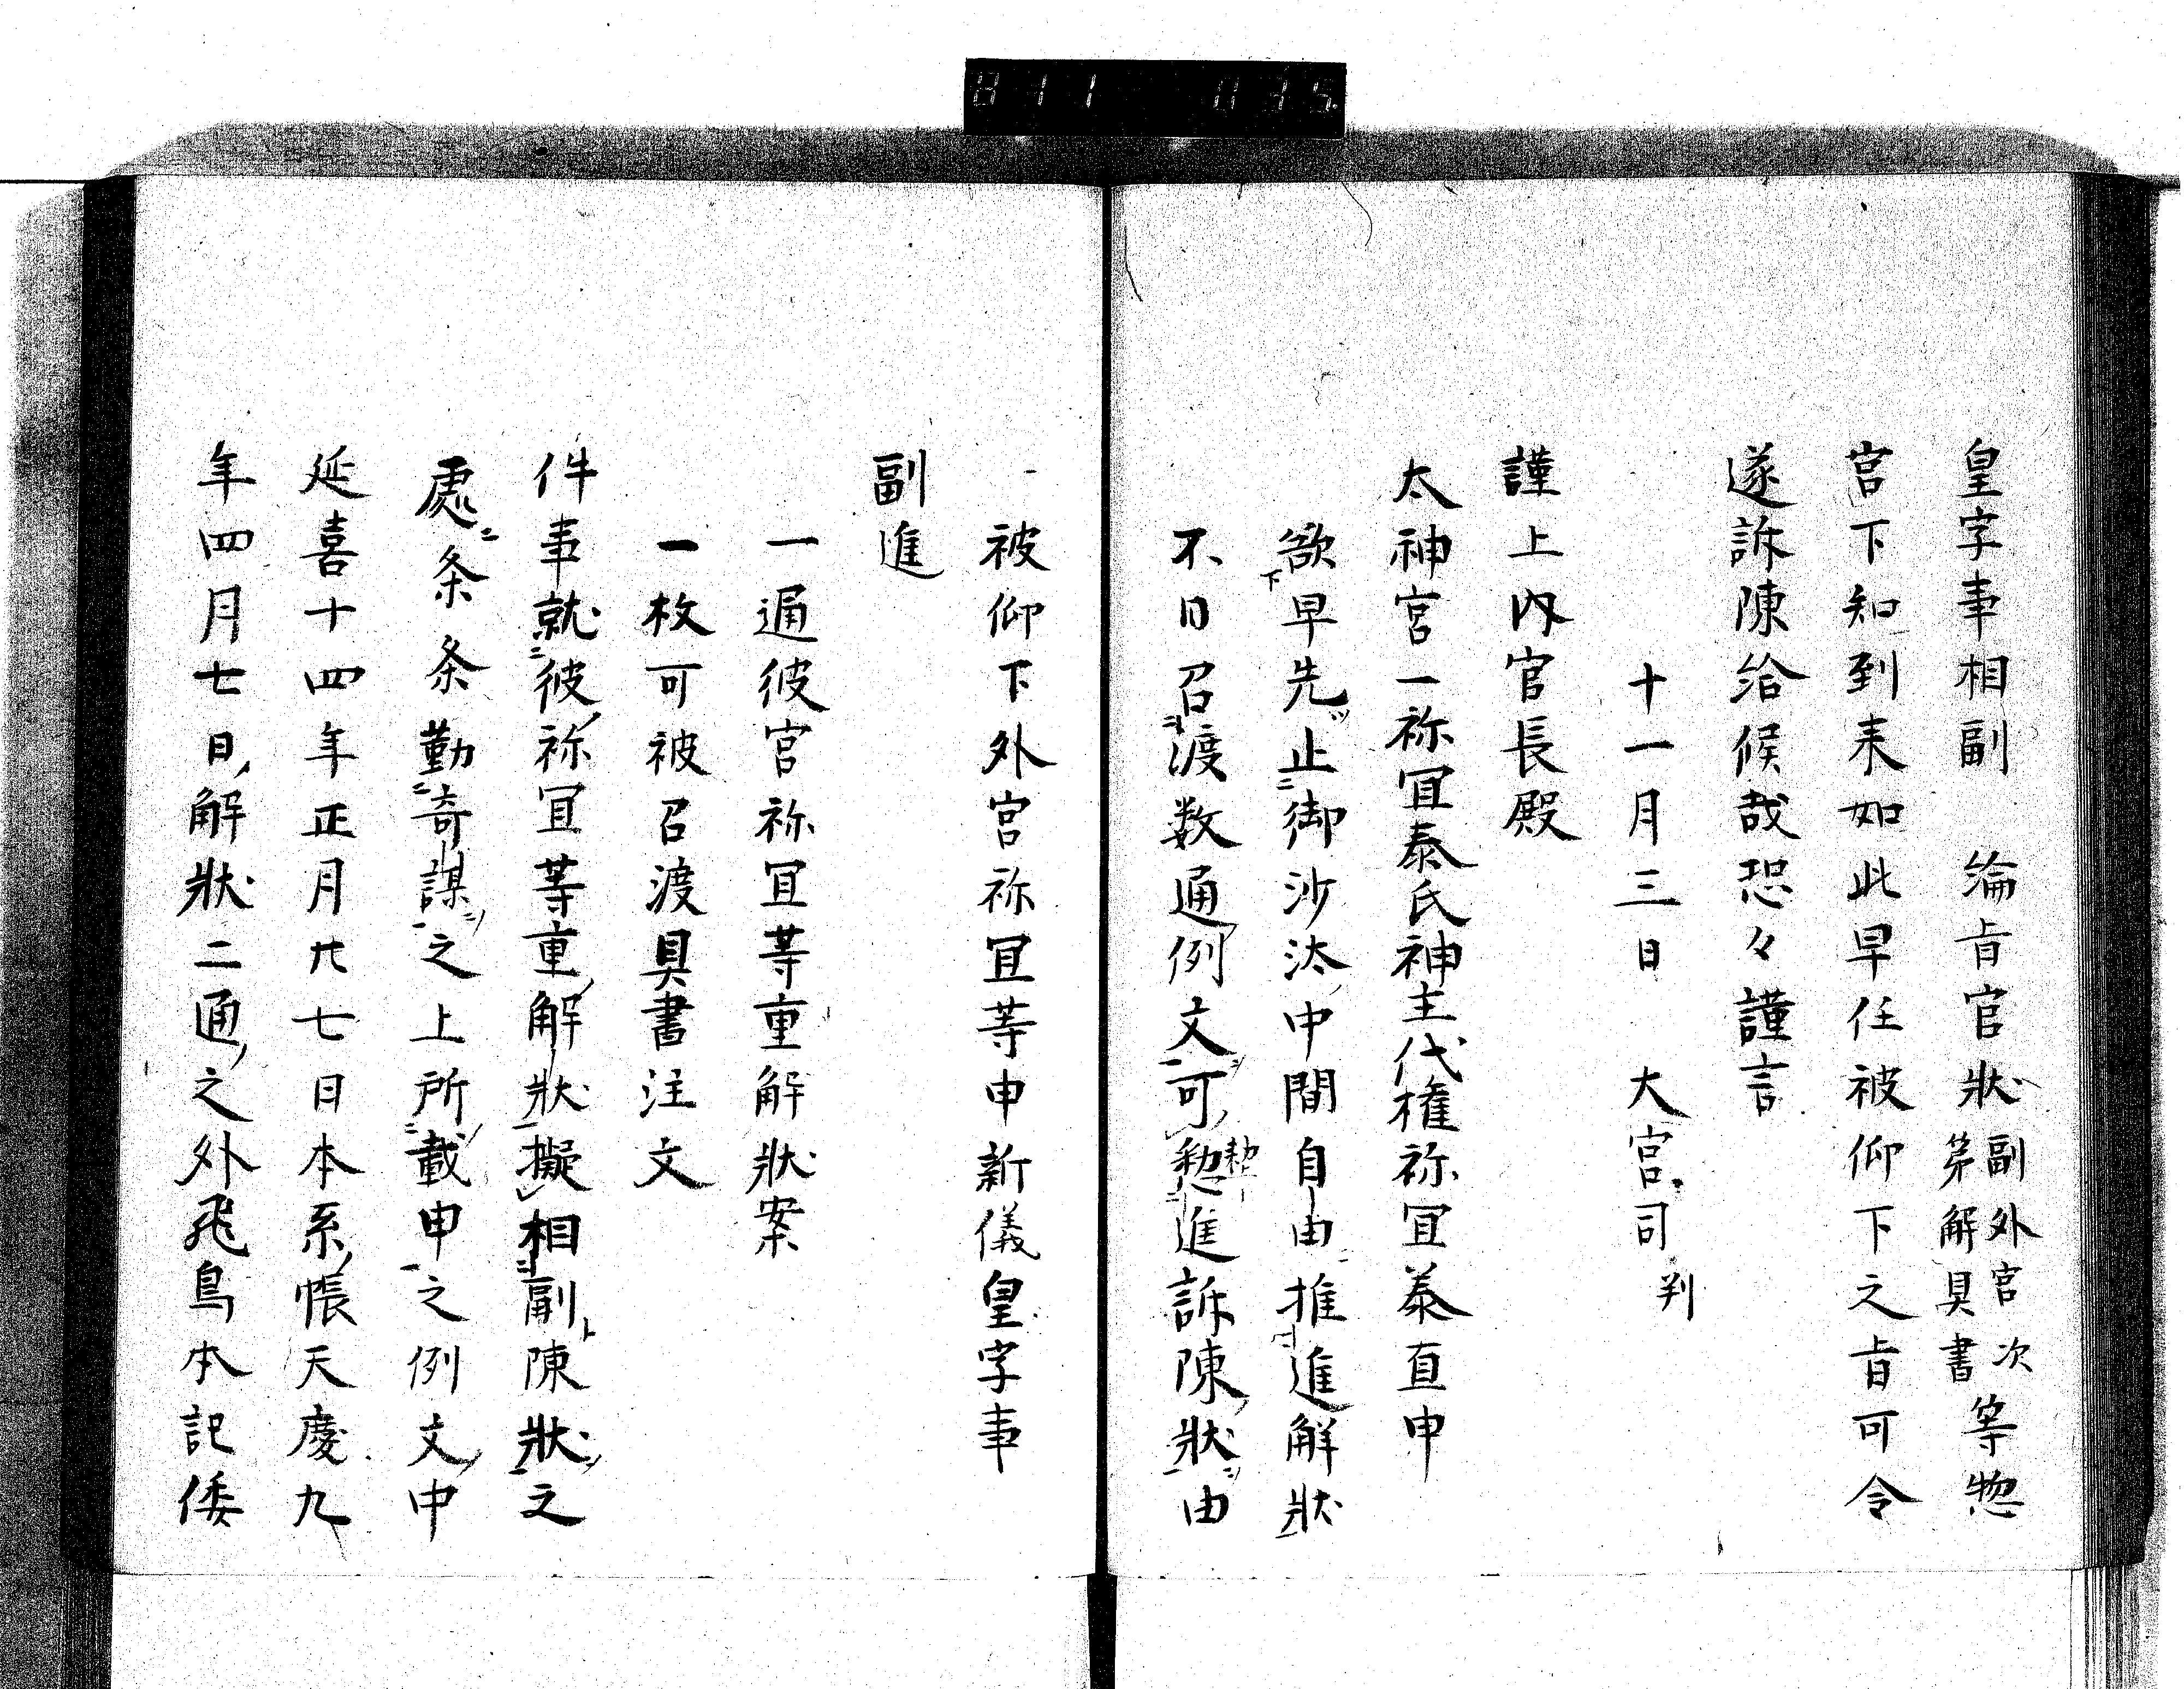 皇字事相副　綸旨官状副外宮次第解具書等惣
官下知到来如此早任被仰下之旨可令
遂訴陳給候哉恐々謹言
十一月三日　大宮司判
謹上内宮長殿
太神宮一祢冝泰氏神主代権祢冝泰直申
欲下早先止御沙汰中間自由推進解状
不日召渡数通例文可愁進訴陳状由
被仰下外宮祢冝等申新儀皇字事
副進
一通彼宮祢冝等重解状案
一枚可被召渡具書注文
件事就彼祢冝等重解状擬相副陳状之
處条条勤奇謀之上所載申之例文中
延喜十四年正月廿七日本系帳天慶九
年四月七日解状二通之外飛鳥本記倭